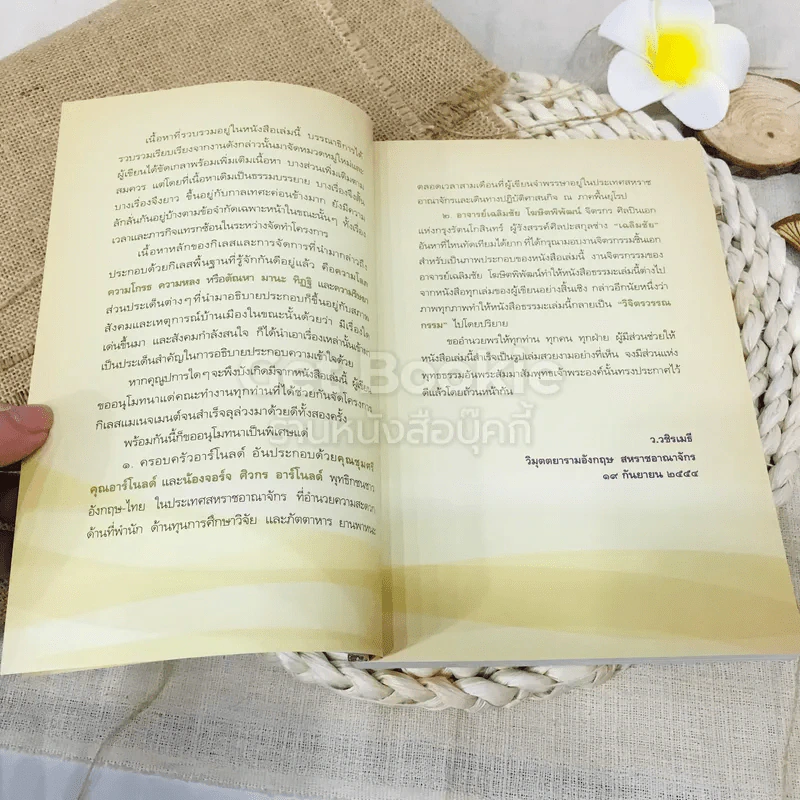 เนื้อหาที่รวบรวมอยู่ในหนังสือเล่มนี้ บรรณาธิการได้
รวบรวมเรียบเรียงจากงานดังกล่าวนั้นมาจัดหมวดหมู่ใหม่และ
ผู้เขียนได้ขัดเกลาพร้อมเพิ่มเติมเนื้อหา บางส่วนเพิ่มเติมตาม
สมควร แต่โดยที่เนื้อหาเดิมเป็นธรรมบรรยาย บางเรื่องจึงสั้น
บางเรื่องจึงยาว ขึ้นอยู่กับกาลเทศะค่อนข้างมาก ยังมีความ
ลักลั่นกันอยู่บ้างตามข้อจำกัดเฉพาะหน้าในขณะนั้นๆ ทั้งเรื่อง
เวลาและภารกิจแทรกซ้อนในระหว่างจัดทำโครงการ
เนื้อหาหลักของกิเลสและการจัดการที่นำมากล่าวถึง
ประกอบด้วยกิเลสพื้นฐานที่รู้จักกันดีอยู่แล้ว คือความโลภ
ความโกรธ ความหลง หรือตัณหา มานะ ทิฏฐิ และความริษยา
ส่วนประเด็นต่างๆ ที่นำมาอธิบายประกอบก็ขึ้นอยู่กับสภาพ
สังคมและเหตุการณ์บ้านเมืองในขณะนั้นด้วยว่า มีเรื่องใด
เด่นขึ้นมา และสังคมกำลังสนใจ ก็ได้นำเอาเรื่องเหล่านั้นเข้ามา
เป็นประเด็นสำคัญในการอธิบายประกอบความเข้าใจด้วย
หากคุณูปการใดๆ จะพึงบังเกิดมีจากหนังสือเล่มนี้ ผู้เขียน
ขออนุโมทนาแด่คณะทำงานทุกท่านที่ได้ช่วยกันจัดโครงการ
กิเลสแมเนจเมนต์จนสำเร็จลุล่วงมาด้วยดีทั้งสองครั้ง
พร้อมกันนี้ก็ขออนุโมทนาเป็นพิเศษแด่
๑. ครอบครัวอาร์โนลด์ อันประกอบด้วยคุณชุมศรี
คุณอาร์โนลด์ และน้องจอร์จ ศิวกร อาร์โนลด์ พุทธิกชนชาว
อังกฤษ-ไทย ในประเทศสหราชอาณาจักร ที่อำนวยความสะดวก
ด้านที่พำนัก ด้านทุนการศึกษาวิจัย และภัตตาหาร ยานพาหนะ
ตลอดเวลาสามเดือนที่ผู้เขียนจำพรรษาอยู่ในประเทศสหราช
อาณาจักรและเดินทางปฏิบัติศาสนกิจ ณ ภาคพื้นยุโรป
๒. อาจารย์เฉลิมชัย โฆษิตพิพัฒน์ จิตรกร ศิลปินเอก
แห่งกรุงรัตนโกสินทร์ ผู้รังสรรค์ศิลปะสกุลช่าง "เฉลิมชัย"
อันหาที่ไหนทัดเทียมได้ยาก ที่ได้กรุณามอบงานจิตรกรรมชิ้นเอก
สำหรับเป็นภาพประกอบของหนังสือเล่มนี้ งานจิตรกรรมของ
อาจารย์เฉลิมชัย โฆษิตพิพัฒน์ทำให้หนังสือธรรมะเล่มนี้ต่างไป
จากหนังสือทุกเล่มของผู้เขียนอย่างสิ้นเชิง กล่าวอีกนัยหนึ่งว่า
ภาพทุกภาพทำให้หนังสือธรรมะเล่มนี้กลายเป็น "วิจิตรวรรณ
กรรม" ไปโดยปริยาย
ขออำนวยพรให้ทุกท่าน ทุกคน ทุกฝ่าย ผู้มีส่วนช่วยให้
หนังสือเล่มนี้สำเร็จเป็นรูปเล่มสวยงามอย่างที่เห็น จงมีส่วนแห่ง
พุทธธรรมอันพระสัมมาสัมพุทธเจ้าพระองค์นั้นทรงประกาศไว้
ดีแล้วโดยถ้วนหน้ากัน
ว.วชิรเมธี
วิมุตตยารามอังกฤษ สหราชอาณาจักร
๑๙ กันยายน ๒๕๕๔
ร้านหนังสือบุ๊คกี้